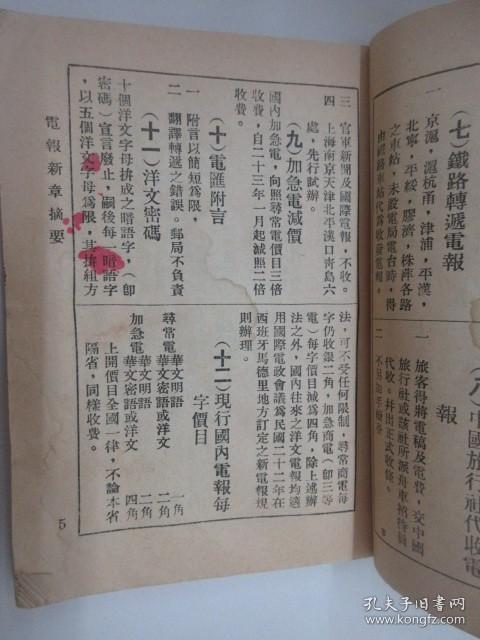 (七)鐵路轉遞電報
一 京滬,滬杭甬,津浦,平漢,
北寧,平綏,膠濟,株萍各路
之車站,未設電局電台時,得
車站代爲收發電報。
(八)中國旅行社代收電
報
一 旅客得將電稿及電費,交中國
旅行社或該社所派舟車招待員
代收。幷出正式收條。
二 不另加手續費
三 官軍新聞及國際電報,不收。
四 上海南京天津北平漢口靑島六
處,先行試辦。
(九)加急電減價
國內加急電,向照尋常電價目三倍
收費,自二十三年一月起減照二倍
收費。
(十)電匯附言
一 附言以簡短爲限,
二 翻譯轉遞之錯誤。郵局不負責
(十一)洋文密碼
十個洋文字母拚成之暗語字,(卽
密碼)宣言廢止,嗣後每一暗語字
,以五個洋文字母爲限,其拚組方
法,可不受任何限制,尋常商電每
字仍收銀二角,加急商電(卽三等
電)每字價目減爲四角,除上述辦
法之外,國內往來之洋文電報均適
用國際電政會議爲民國二十二年在
西班牙馬德里地方訂定之新電報規
則辦理。
(十二)現行國內電報每
字價目
尋常電 華文明語 一角
華文密語或洋文 二角
加急電 華文明語 二角
華文密語或洋文 四角
上開價目全國一律,不論本省
隔省,同樣收費。
電報新章摘要
5
孔夫子旧书网